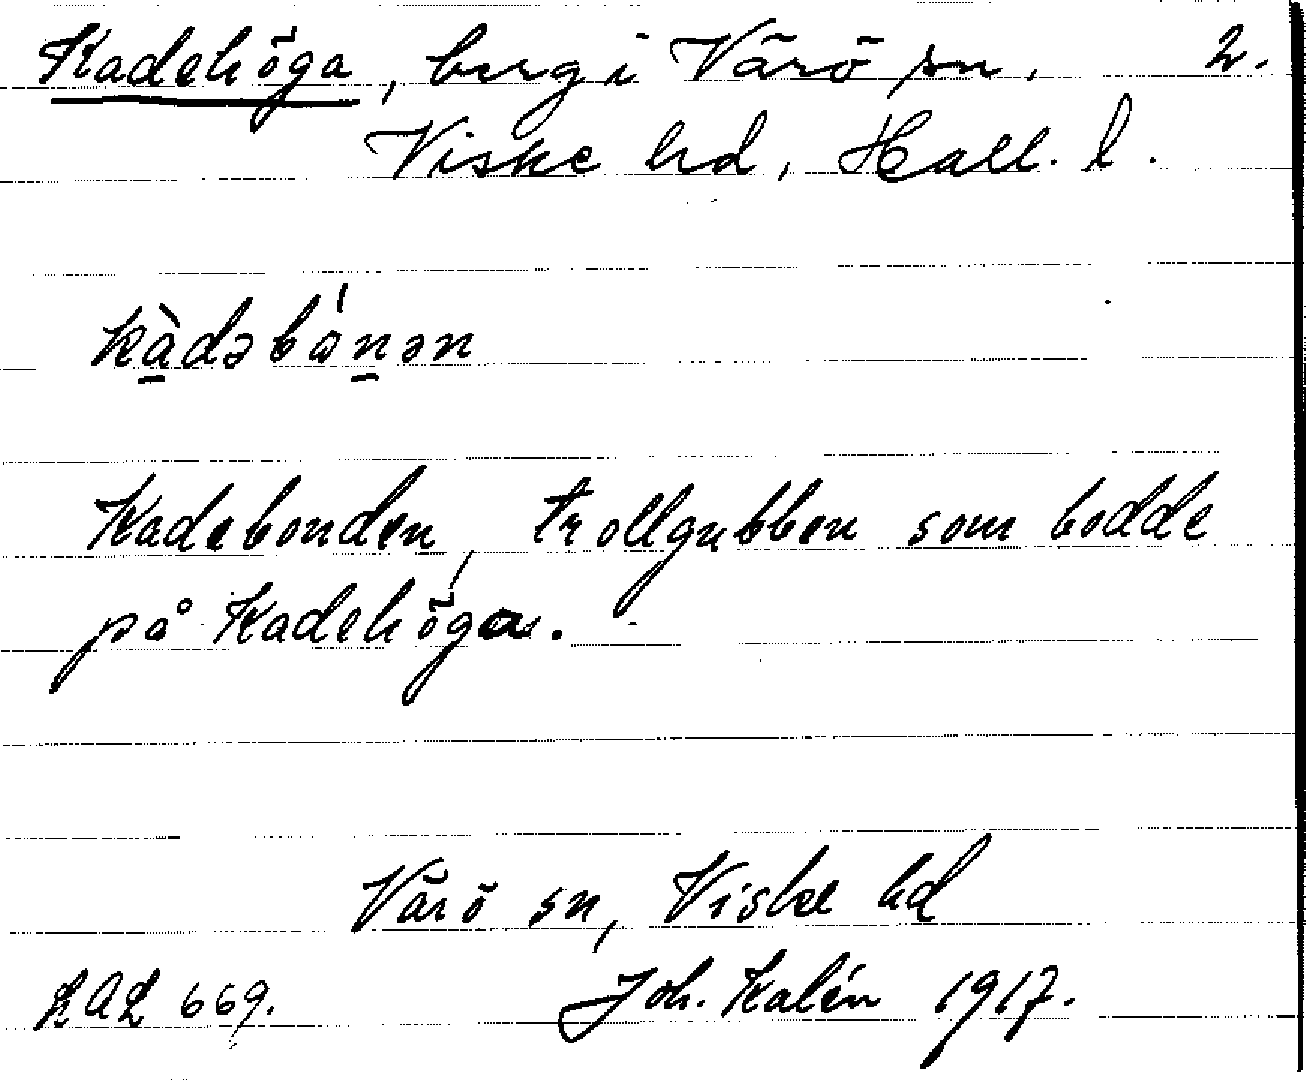 Kadehöga, berg i Värö sn. 2.
Viske hd, Hall. l.
kàdəbónən
Kadebonden, trollgubben som bodde
på Kadehöga.
Värö sn, Viske hd
LAL 669. Joh. Kalén 1917.